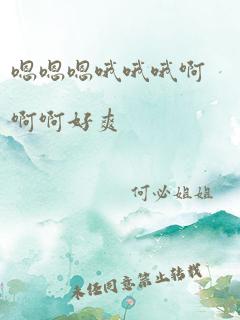 嗯嗯嗯哦哦哦啊
啊啊好爽
何必姐姐
未经同意禁止转载